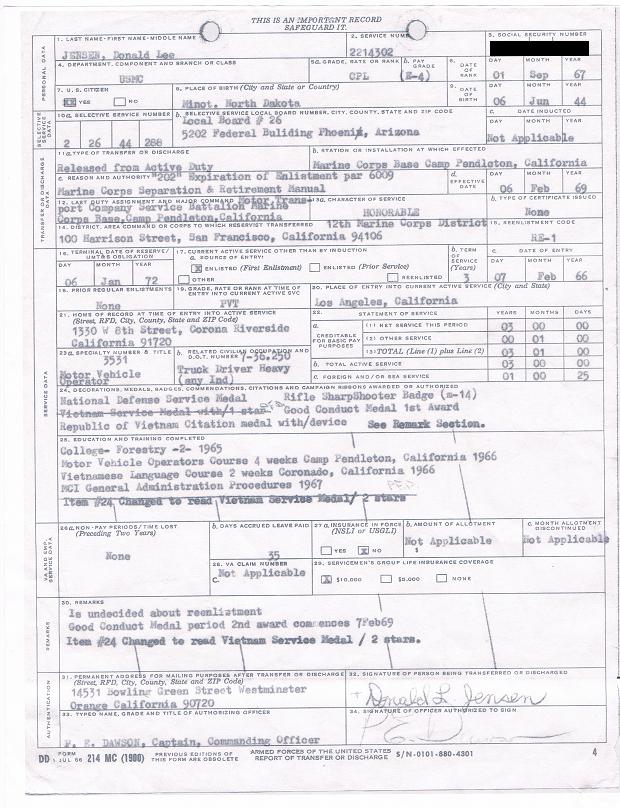 THIS IS AN IMPORTANT RECORD
SAFEGUARD IT.
PERSONAL DATA
1. LAST NAME-FIRST NAME-MIDDLE NAME
JENSEN, Donald Lee
2. SERVICE NUMBER
2214302
3. SOCIAL SECURITY NUMBER
4. DEPARTMENT, COMPONENT AND BRANCH OR CLASS
USMC
5a. GRADE, RATE OR RANK
CPL
b. PAY GRADE
(E-4)
6. DATE OF RANK
DAY MONTH YEAR
01 Sep 67
7. U.S. CITIZEN
XX YES NO
8. PLACE OF BIRTH (City and State or Country)
Minot, North Dakota
9. DATE OF BIRTH
DAY MONTH YEAR
06 Jun 44
SELECTIVE SERVICE DATA
10a. SELECTIVE SERVICE NUMBER
2 26 44 288
b. SELECTIVE SERVICE LOCAL BOARD NUMBER, CITY, COUNTY, STATE AND ZIP CODE
Local Board # 26
5202 Federal Buliding Phoenix, Arizona
c. DATE INDUCTED
DAY MONTH YEAR
Not Applicable
TRANSFER OR DISCHARGE DATA
11a. TYPE OF TRANSFER OR DISCHARGE
Released from Active Duty
b. STATION OR INSTALLATION AT WHICH EFFECTED
Marine Corps Base Camp Pendleton, California
c. REASON AND AUTHORITY "202" Expiration of Enlistment par 6009
Marine Corps Separation & Retirement Manual
d. EFFECTIVE DATE
DAY MONTH YEAR
06 Feb 69
12. LAST DUTY ASSIGNMENT AND MAJOR COMMAND Motor Trans-
port Company Service Battalion Marine
Corps Base, Camp Pendleton, California
13a. CHARACTER OF SERVICE
HONORABLE
b. TYPE OF CERTIFICATE ISSUED
None
14. DISTRICT, AREA COMMAND OR CORPS TO WHICH RESERVIST TRANSFERRED 12th Marine Corps District
100 Harrison Street, San Francisco, California 94106
15. REENLISTMENT CODE
RE-1
16. TERMINAL DATE OF RESERVE/
UMT&S OBLIGATION
DAY MONTH YEAR
06 Jan 72
17. CURRENT ACTIVE SERVICE OTHER THAN BY INDUCTION
a. SOURCE OF ENTRY:
X ENLISTED (First Enlistment) ENLISTED (Prior Service) REENLISTED
OTHER
b. TERM OF SERVICE (Years)
3
c. DATE OF ENTRY
DAY MONTH YEAR
07 Feb 66
18. PRIOR REGULAR ENLISTMENTS
None
19. GRADE, RATE OR RANK AT TIME OF
ENTRY INTO CURRENT ACTIVE SVC
PVT
20. PLACE OF ENTRY INTO CURRENT ACTIVE SERVICE (City and State)
Los Angeles, California
SERVICE DATA
21. HOME OF RECORD AT TIME OF ENTRY INTO ACTIVE SERVICE
(Street, RFD, City, County, State and ZIP Code)
1330 W 8th Street, Corona Riverside
California 91720
22. STATEMENT OF SERVICE YEARS MONTHS DAYS
a. CREDITABLE FOR BASIC PAY PURPOSES
(1) NET SERVICE THIS PERIOD 03 00 00
(2) OTHER SERVICE 00 01 00
(3) TOTAL (Line (1) plus Line (2)) 03 01 00
b. TOTAL ACTIVE SERVICE 03 00 00
c. FOREIGN AND/OR SEA SERVICE 01 00 25
23a. SPECIALTY NUMBER & TITLE
3531
Motor Vehicle
Operator
b. RELATED CIVILIAN OCCUPATION AND
D.O.T. NUMBER 7-36.250
Truck Driver Heavy
(any Ind)
24. DECORATIONS, MEDALS, BADGES, COMMENDATIONS, CITATIONS AND CAMPAIGN RIBBONS AWARDED OR AUTHORIZED
National Defense Service Medal Rifle SharpShooter Badge (m-14)
Vietnam Service Medal with/1 star Good Conduct Medal 1st Award
Republic of Vietnam Citation medal with/device See Remark Section.
25. EDUCATION AND TRAINING COMPLETED
College- Forestry -2- 1965
Motor Vehicle Operators Course 4 weeks Camp Pendleton, California 1966
Vietnamese Language Course 2 weeks Coronado, California 1966
MCI General Administration Procedures 1967
Item #24 Changed to read Vietnam Service Medal/ 2 stars
VA AND EMP. SERVICE DATA
26a. NON-PAY PERIODS/TIME LOST
(Preceding Two Years)
None
b. DAYS ACCRUED LEAVE PAID
35
27a. INSURANCE IN FORCE
(NSLI or USGLI)
YES X NO
b. AMOUNT OF ALLOTMENT
$
Not Applicable
c. MONTH ALLOTMENT
DISCONTINUED
Not Applicable
28. VA CLAIM NUMBER
C. Not Applicable
29. SERVICEMEN'S GROUP LIFE INSURANCE COVERAGE
X $10,000 $5,000 NONE
REMARKS
30. REMARKS
Is undecided about reenlistment
Good Conduct Medal period 2nd award commences 7Feb69
Item #24 Changed to read Vietnam Service Medal / 2 stars.
AUTHENTICATION
31. PERMANENT ADDRESS FOR MAILING PURPOSES AFTER TRANSFER OR DISCHARGE
(Street, RFD, City, County, State and ZIP Code)
14531 Bowling Green Street Westminster
Orange California 90720
32. SIGNATURE OF PERSON BEING TRANSFERRED OR DISCHARGED
Donald L Jensen
33. TYPED NAME, GRADE AND TITLE OF AUTHORIZING OFFICER
P. E. DAWSON, Captain, Commanding Officer
34. SIGNATURE OF OFFICER AUTHORIZED TO SIGN
DD FORM 1 JUL 66 214 MC (1900)
PREVIOUS EDITIONS OF
THIS FORM ARE OBSOLETE
ARMED FORCES OF THE UNITED STATES
REPORT OF TRANSFER OR DISCHARGE
S/N-0101-880-4301
4